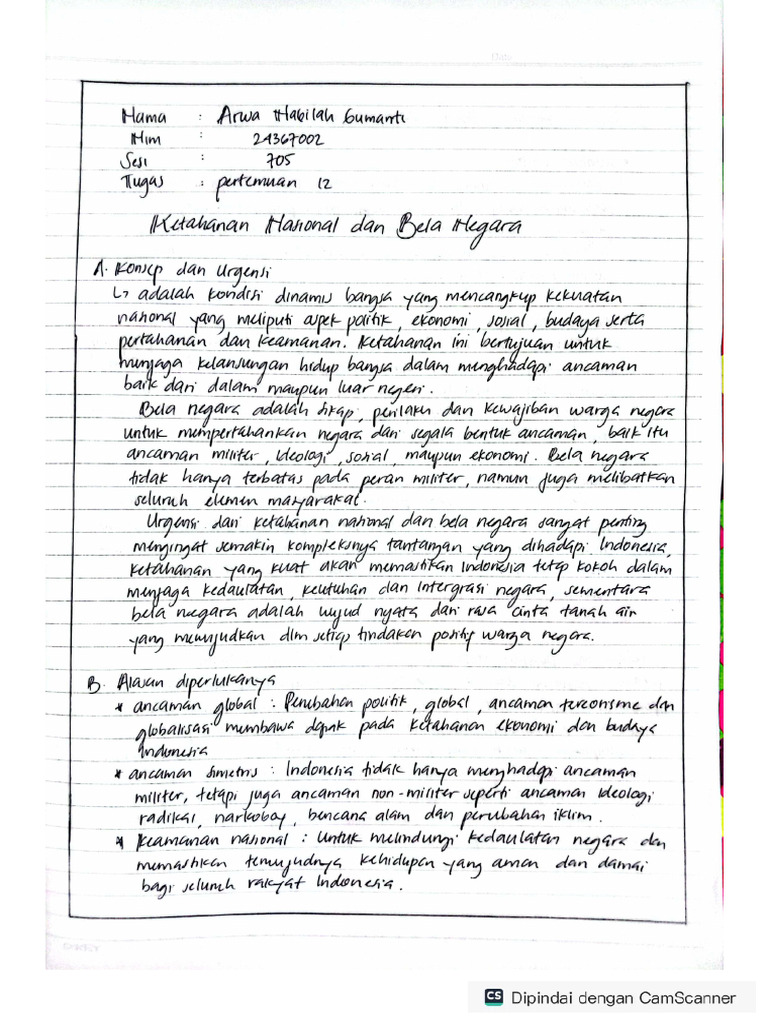 Nama : Arwa Nabilah Gumanti
Nim : 24367002
Sesi : 705
Tugas : pertemuan 12
Ketahanan Nasional dan Bela Negara
A. Konsep dan Urgensi
↳ adalah kondisi dinamis bangsa yang mencangkup kekuatan
nasional yang meliputi aspek politik, ekonomi, sosial, budaya serta
pertahanan dan keamanan. Ketahanan ini bertujuan untuk
menjaga kelansungan hidup bangsa dalam menghadapi ancaman
baik dari dalam maupun luar negeri.
Bela negara adalah sikap, perilaku dan kewajiban warga negara
untuk mempertahankan negara dari segala bentuk ancaman, baik itu
ancaman militer, ideologi, sosial, maupun ekonomi. Bela negara
tidak hanya terbatas pada peran militer, namun juga melibatkan
seluruh elemen masyarakat.
Urgensi dari ketahanan nasional dan bela negara sangat penting
mengingat semakin kompleksnya tantangan yang dihadapi Indonesia,
ketahanan yang kuat akan memastikan Indonesia tetap kokoh dalam
menjaga kedaulatan, keutuhan dan intergrasi negara, sementara
bela negara adalah wujud nyata dari rasa cinta tanah air
yang mewujudkan dlm setiap tindakan positif warga negara.
B. Alasan diperlukanya
* ancaman global : Perubahan politik, global, ancaman terorisme dan
globalisasi membawa dapak pada ketahanan ekonomi dan budaya
Indonesia
* ancaman simetris : Indonesia tidak hanya menghadapi ancaman
militer, tetapi juga ancaman non-militer seperti ancaman ideologi
radikal, narkoboy, bencana alam dan perubahan iklim.
* Keamanan nasional : Untuk melindungi kedaulatan negara dan
memastikan terwujudnya kehidupan yang aman dan damai
bagi seluruh rakyat Indonesia.
CS Dipindai dengan CamScanner